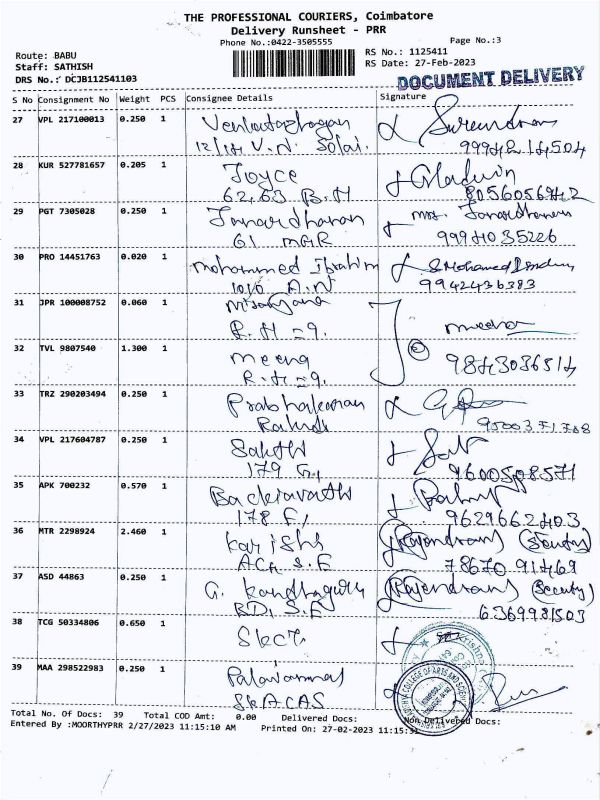 THE PROFESSIONAL COURIERS, Coimbatore
Delivery Runsheet - PRR
Phone No.:0422-3505555
Page No.:3
Route: BABU
Staff: SATHISH
DRS No.: DCJB112541103
RS No.: 1125411
RS Date: 27-Feb-2023
DOCUMENT DELIVERY
S No Consignment No Weight PCS Consignee Details Signature
27 VPL 217100013 0.250 1
12/14 V.N. Solai.
28 KUR 527781657 0.205 1 Joyce Gladwin
62,63 B.H 8056056942
29 PGT 7305028 0.250 1 Janardhanan mrs. Janardhanan
61 MGR 9994035226
30 PRO 14451763 0.020 1 Mohammed Ibrahim
1010 A.N 9942436383
31 JPR 100008752 0.060 1
R.H=9.
32 TVL 9807540 1.300 1 meena 9843036514
R.H=9.
33 TRZ 290203494 0.250 1 Prabhakaran
34 VPL 217604787 0.250 1 Sakthi
179 9600508571
35 APK 700232 0.570 1
178 F, 9629662403
36 MTR 2298924 2.460 1 (Rajendran)
ACA S.F 7867091469
37 ASD 44863 0.250 1 G. (Rajendran)
BDI S.F 6369981503
38 TCG 50334806 0.650 1 SKCT
39 MAA 298522983 0.250 1
SKACAS
Total No. Of Docs: 39 Total COD Amt: 0.00 Delivered Docs: Non Delivered Docs:
Entered By :MOORTHYPRR 2/27/2023 11:15:10 AM Printed On: 27-02-2023 11:15:31